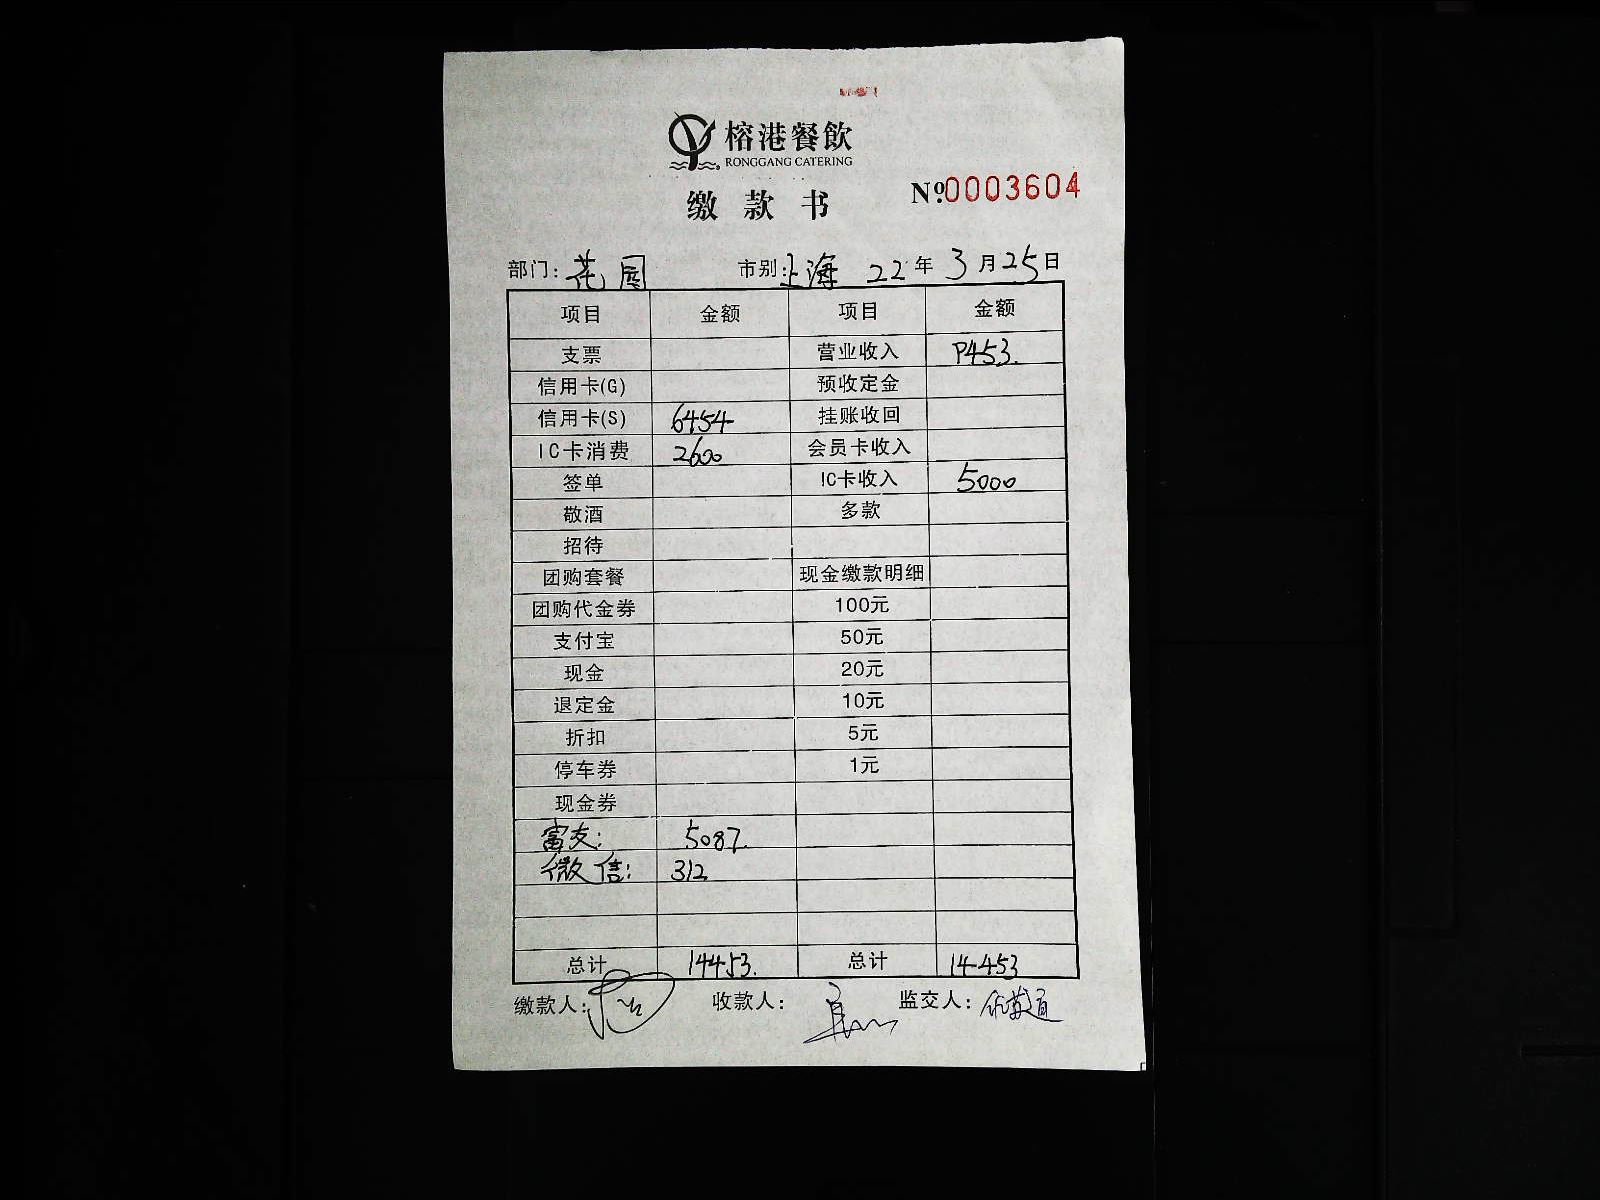 榕港餐飲
RONGGANG CATERING
缴款书
№0003604
部门:花园 市别:上海 22年3月25日
项目 金额 项目 金额
支票 营业收入 9453.
信用卡(G) 预收定金
信用卡(S) 6454 挂账收回
IC卡消费 2600 会员卡收入
签单 IC卡收入 5000
敬酒 多款
招待
团购套餐 现金缴款明细
团购代金券 100元
支付宝 50元
现金 20元
退定金 10元
折扣 5元
停车券 1元
现金券
富友: 5087.
微信: 312
总计 14453. 总计 14453
缴款人: 收款人: 监交人: